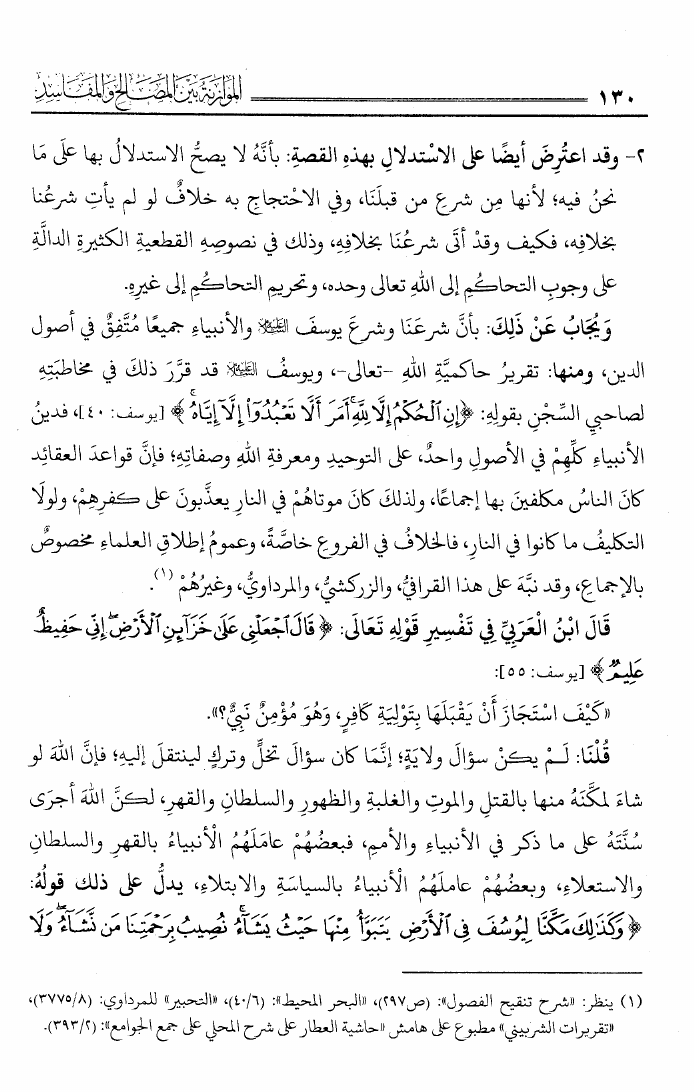 ١٣٠ الموازنة بين المصالح والمفاسد
٢- وقد اعتُرِضَ أيضًا على الاسْتدلالِ بهذهِ القصةِ: بأنَّهُ لا يصحُّ الاستدلالُ بها علَى مَا
نحنُ فيه؛ لأنها مِن شرعِ من قبلَنَا، وفي الاحْتجاجِ به خلافٌ لو لم يأتِ شرعُنا
بخلافِه، فكيف وقدْ أتَى شرعُنَا بخلافِهِ، وذلك في نصوصِهِ القطعيةِ الكثيرةِ الدالَّةِ
على وجوبِ التحاكُمِ إلى اللهِ تعالى وحده، وتحريمِ التحاكُمِ إلى غيرِهِ.
وَيُجَابُ عَنْ ذَلِكَ: بأنَّ شرعَنَا وشرعَ يوسفَ عليه السلام والأنبياءِ جميعًا مُتَّفِقٌ في أصول
الدين، ومنها: تقريرُ حاكميَّةِ اللهِ -تعالى-، ويوسفُ عليه السلام قد قرَّرَ ذلكَ في مخاطبَتِهِ
لصاحبي السِّجْنِ بقولِهِ: ﴿إِنِ ٱلْحُكْمُ إِلَّا لِلَّهِ ۚ أَمَرَ أَلَّا تَعْبُدُوٓا۟ إِلَّآ إِيَّاهُ ۚ﴾ [يوسف: ٤٠]، فدينُ
الأنبياءِ كلِّهِمْ في الأصولِ واحدٌ، على التوحيدِ ومعرفةِ اللهِ وصفاتِهِ؛ فإنَّ قواعدَ العقائد
كانَ الناسُ مكلفينَ بها إجماعًا، ولذلكَ كانَ موتاهُمْ في النارِ يعذَّبونَ على كفرِهِمْ، ولولَا
التكليفُ ما كانوا في النارِ، فالخلافُ في الفروعِ خاصَّةً، وعمومُ إطلاقِ العلماءِ مخصوصٌ
بالإجماعِ، وقد نبَّهَ على هذا القرافيُّ، والزركشيُّ، والمرداويُّ، وغيرُهُمْ (١).
قَالَ ابْنُ الْعَرَبِيِّ فِي تَفْسِيرِ قَوْلِهِ تَعَالَى: ﴿قَالَ ٱجْعَلْنِى عَلَىٰ خَزَآئِنِ ٱلْأَرْضِ ۖ إِنِّى حَفِيظٌ
عَلِيمٌ﴾ [يوسف: ٥٥]:
«كَيْفَ اسْتَجَازَ أَنْ يَقْبَلَهَا بِتَوْلِيَةِ كَافِرٍ، وَهُوَ مُؤْمِنٌ نَبِيٌّ؟».
قُلْنَا: لَمْ يكنْ سؤالَ ولايَةٍ؛ إنَّمَا كان سؤالَ تخلٍّ وتركٍ لينتقلَ إليهِ؛ فإنَّ اللهَ لو
شاءَ لمكَّنَهُ منها بالقتلِ والموتِ والغلبةِ والظهورِ والسلطانِ والقهرِ، لكنَّ اللهَ أجرَى
سُنَّتَهُ على ما ذكر في الأنبياءِ والأممِ، فبعضُهُمْ عامَلَهُمُ الْأنبياءُ بالقهرِ والسلطانِ
والاستعلاءِ، وبعضُهُمْ عاملَهُمُ الْأنبياءُ بالسياسةِ والابتلاءِ، يدلُّ على ذلك قولُهُ:
﴿وَكَذَٰلِكَ مَكَّنَّا لِيُوسُفَ فِى ٱلْأَرْضِ يَتَبَوَّأُ مِنْهَا حَيْثُ يَشَآءُ ۚ نُصِيبُ بِرَحْمَتِنَا مَن نَّشَآءُ ۖ وَلَا
(١) ينظر: «شرح تنقيح الفصول»: (ص٢٩٧)، «البحر المحيط»: (٤٠/٦)، «التحبير» للمرداوي: (٣٧٧٥/٨)،
«تقريرات الشربيني» مطبوع على هامش «حاشية العطار على شرح المحلي على جمع الجوامع»: (٣٩٣/٢).